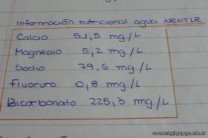 Información nutricional agua NESTLE
Calcio 51,5 mg/L
Magnesio 5,2 mg/L
Sodio 79,6 mg/L
Fluoruro 0,8 mg/L
Bicarbonato 225,3 mg/L